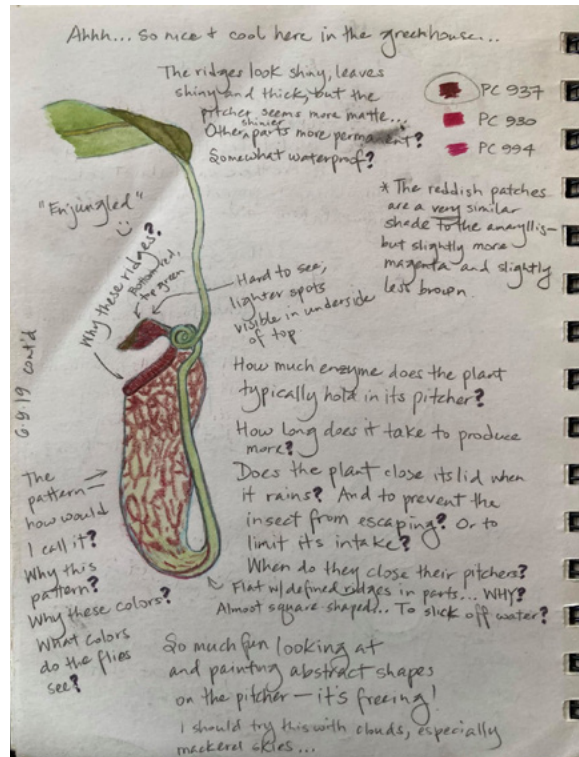 Ahhh... So nice + cool here in the greenhouse...
The ridges look shiny, leaves
shiny and thick, but the
pitcher seems more matte...
shinier
Other parts more permanent?
Somewhat waterproof?
PC 937
PC 930
PC 994
* The reddish patches
are a very similar
shade to the amaryllis –
but slightly more
magenta and slightly
less brown.
"Enjungled"
Why these ridges?
Bottom red,
top green
Hard to see,
lighter spots
visible in underside
of top.
6.9.19 cont'd
How much enzyme does the plant
typically hold in its pitcher?
How long does it take to produce
more?
Does the plant close its lid when
it rains? And to prevent the
insect from escaping? Or to
limit its intake?
When do they close their pitchers?
Flat w/ defined ridges in parts... WHY?
Almost square shaped... To slick off water?
The
pattern =
how would
I call it?
Why this
pattern?
Why these colors?
What colors
do the flies
see?
So much fun looking at
and painting abstract shapes
on the pitcher – it's freeing!
I should try this with clouds, especially
mackerel skies...